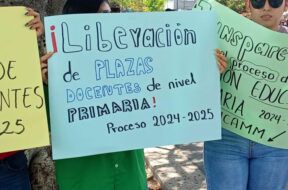 DE
ENTES
25
¡Liberación
de PLAZAS
DOCENTES de nivel
PRIMARIA!
Proceso 2024-2025
proceso de
ÓN EDUC
ARIA 2024-
CAMM